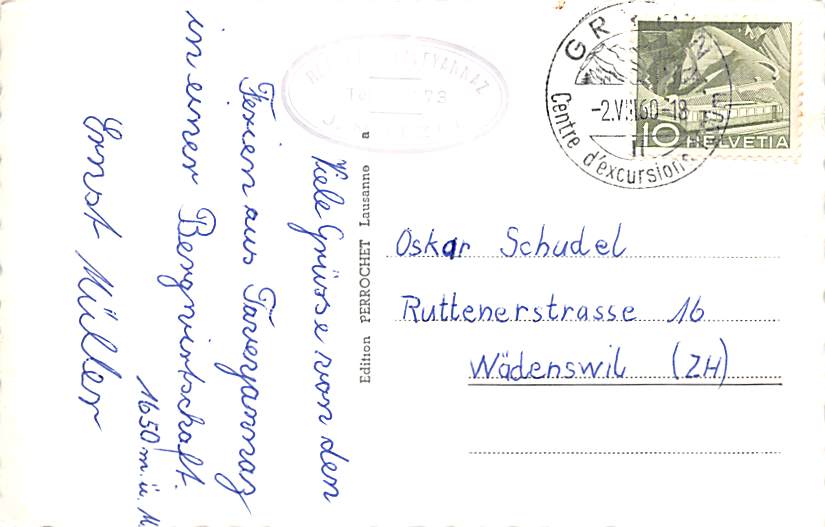 Viele Grüsse von den
Ferien aus Taveyannaz
in einer Bergwirtschaft.
1650 m. ü. M
Ernst Müller
Edition PERROCHET Lausanne a
GRYON
-2.VIII60-18
Centre d'excursions
10 HELVETIA
Oskar Schudel
Ruttenerstrasse 16
Wädenswil (ZH)